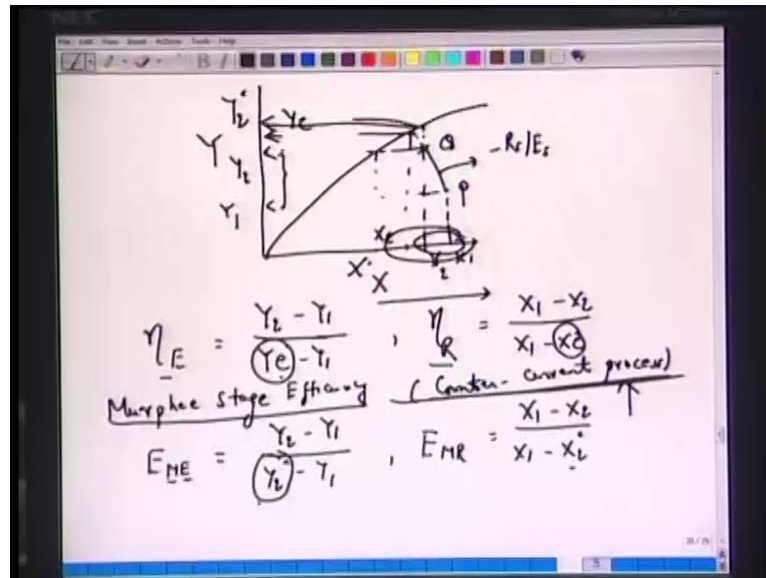 File Edit View Insert Actions Tools Help
Y₂* Ye
Y Y₂ Q -Rs/Es
Y₁ P
Xe X₂ X₁
X* X
η_E = (Y₂ - Y₁)/(Ye - Y₁) , η_R = (X₁ - X₂)/(X₁ - Xe)
Murphee Stage Efficiency (Counter-current process)
E_ME = (Y₂ - Y₁)/(Y₂* - Y₁) , E_MR = (X₁ - X₂)/(X₁ - X₂*)